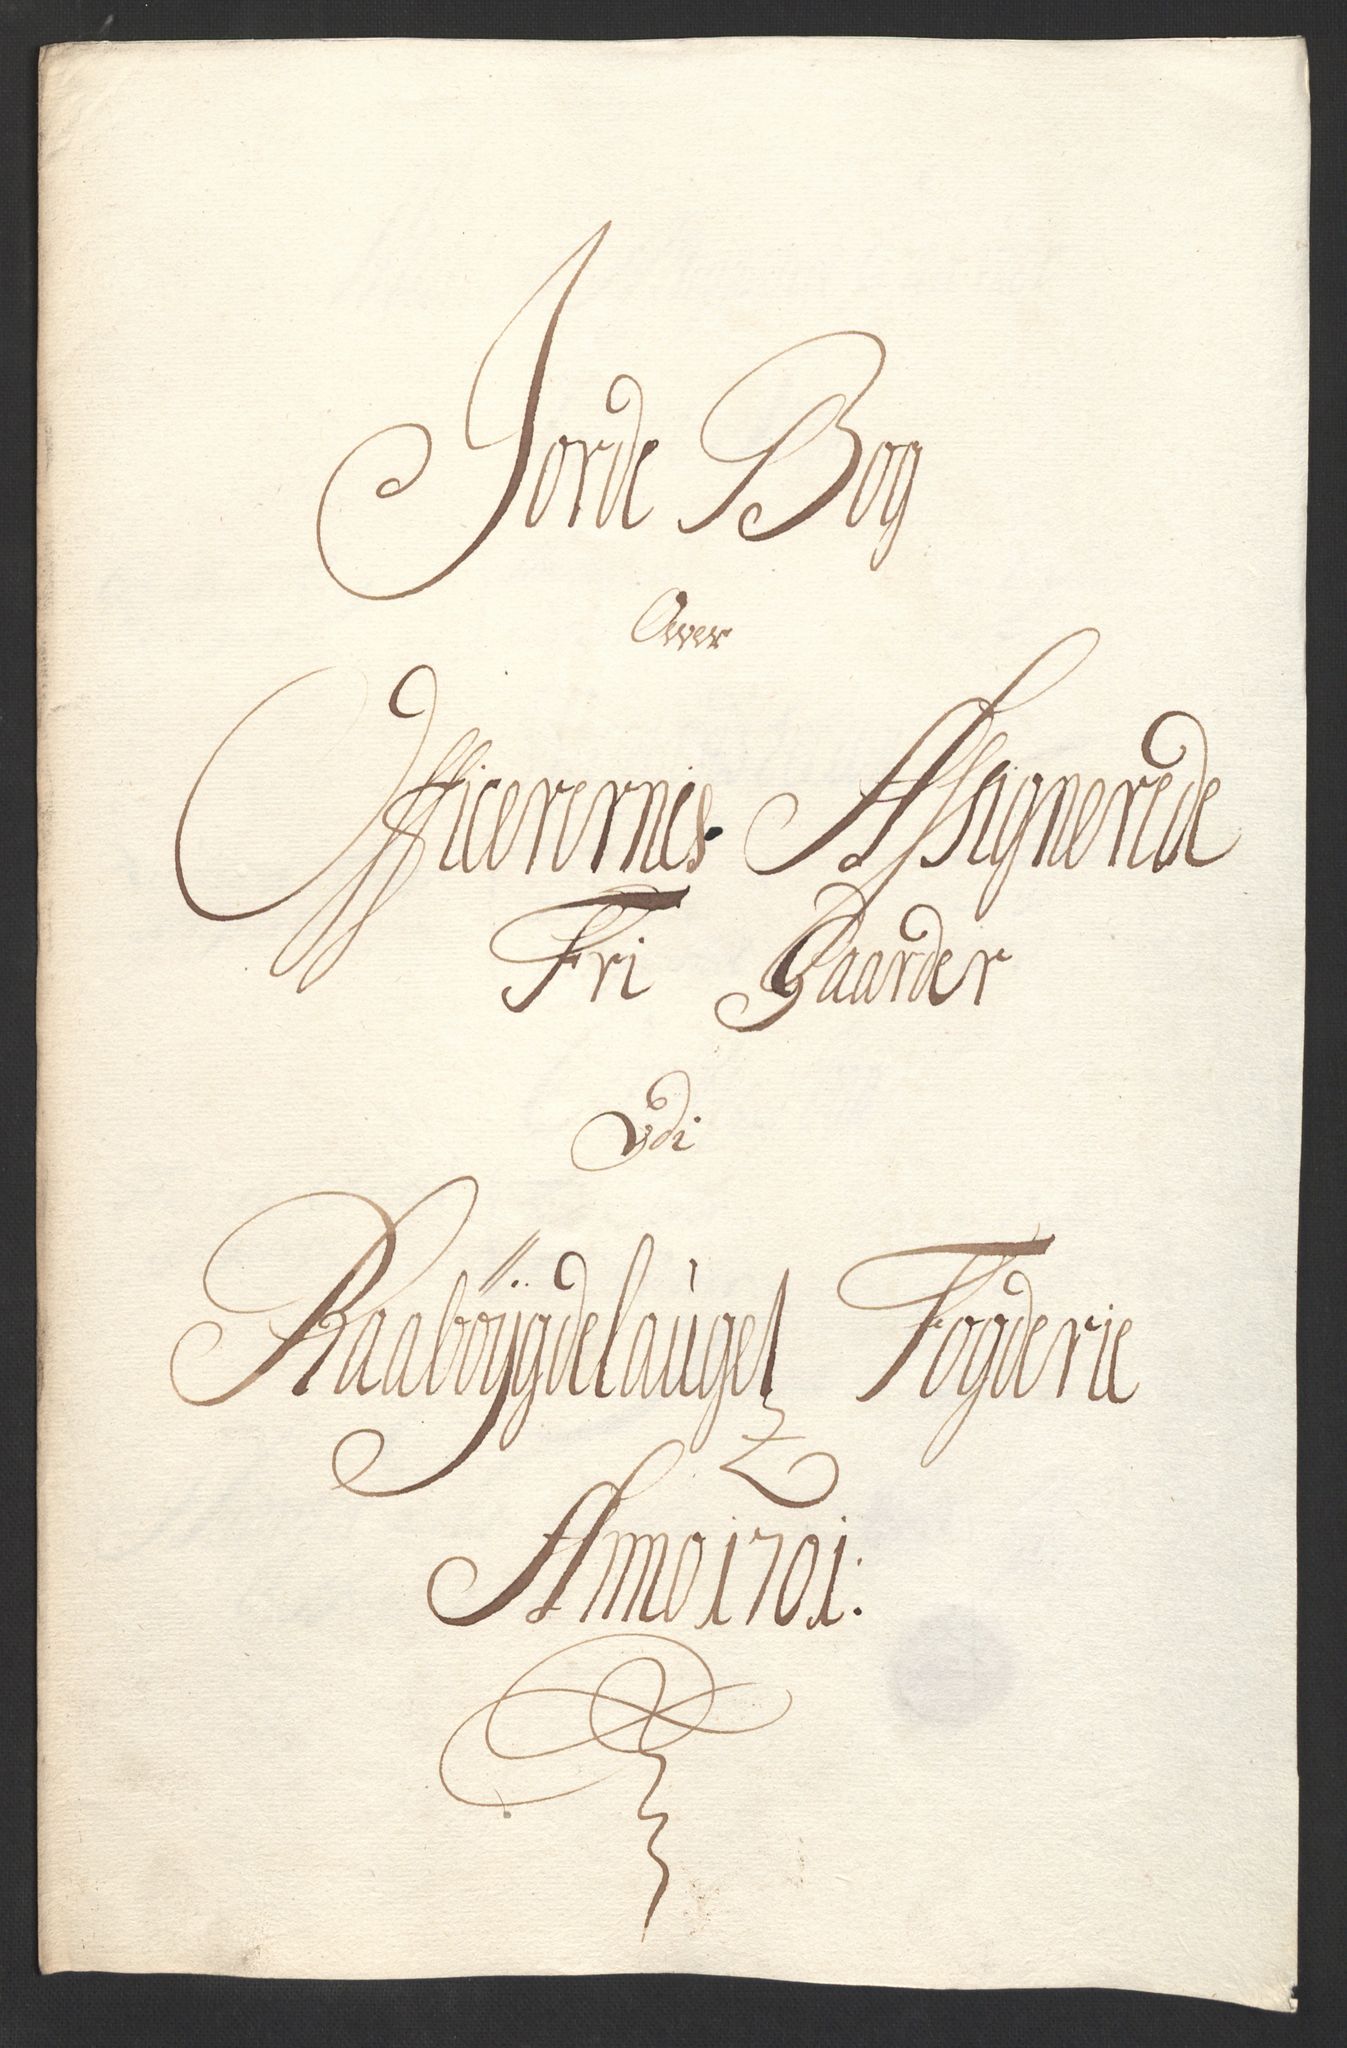 Jorde Bog
Over
Officerernes Assignerede
Fri Gaarder
Vdi
Raaböÿgdelauget Fogderie
Anno 1701: